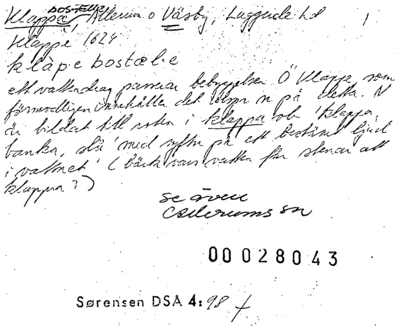 bostælle
Klappe, Allerum o Väsby, Luggude hd 1
Klappe 1624
klápe bostæle
ett vattendrag passerar bebyggelsen Ö Klappe, som
förmodligen innehåller det namn på detta. N
är bildat till roten i klappa vb 'klappa,
banka, slå' med syfte på ett bestämt ljud
i vattnet (bäck vars vatten får stenar att
klappa?)
se även
Cederums sn
00028043
Sørensen DSA 4:98 f